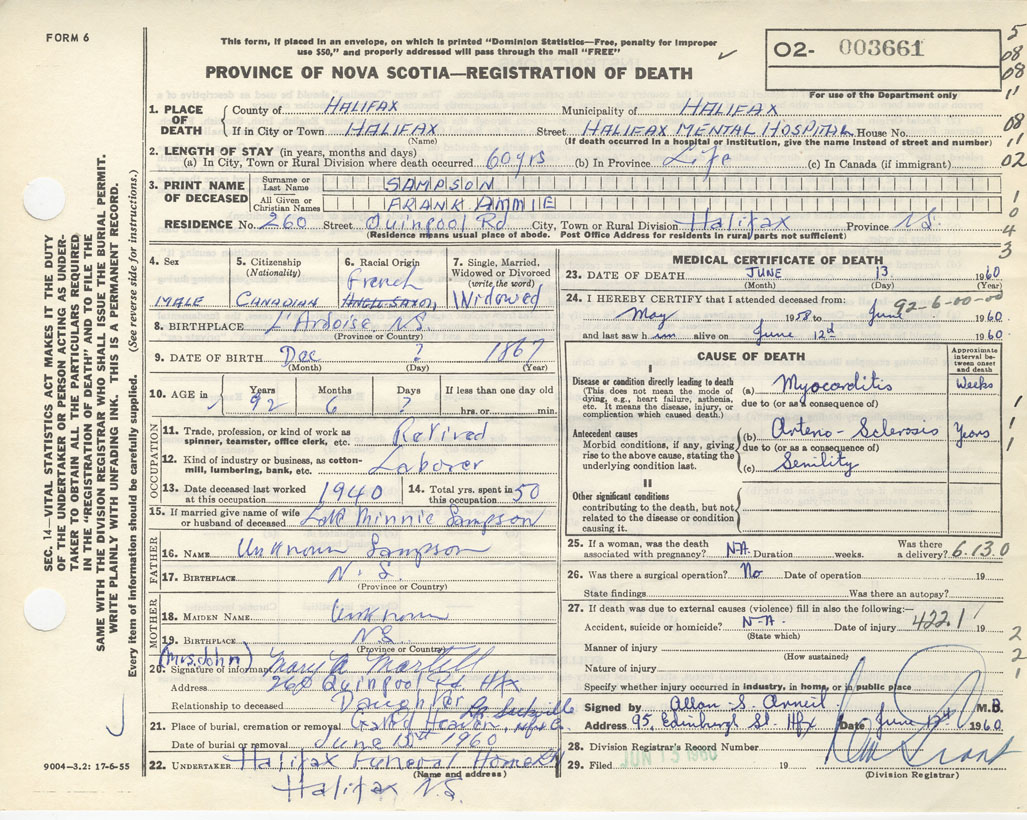 FORM 6
This form, if placed in an envelope, on which is printed "Dominion Statistics—Free, penalty for improper
use $50," and properly addressed will pass through the mail "FREE"
O2- 003661
For use of the Department only
PROVINCE OF NOVA SCOTIA—REGISTRATION OF DEATH
1. PLACE OF DEATH { County of HALIFAX Municipality of HALIFAX
If in City or Town HALIFAX Street HALIFAX MENTAL HOSPITAL House No.
(Name) (If death occurred in a hospital or institution, give the name instead of street and number)
2. LENGTH OF STAY (in years, months and days)
(a) In City, Town or Rural Division where death occurred 60 yrs (b) In Province Life (c) In Canada (if immigrant)
3. PRINT NAME OF DECEASED { Surname or Last Name SAMPSON
All Given or Christian Names FRANK AMMIE
RESIDENCE No. 260 Street Quinpool Rd City, Town or Rural Division Halifax Province N.S.
(Residence means usual place of abode. Post Office Address for residents in rural parts not sufficient)
4. Sex MALE
5. Citizenship (Nationality) CANADIAN
6. Racial Origin French ANGLO SAXON
7. Single, Married, Widowed or Divorced (write the word) Widowed
8. BIRTHPLACE L'Ardoise N.S.
(Province or Country)
9. DATE OF BIRTH Dec ? 1867
(Month) (Day) (Year)
10. AGE in Years 92 Months 6 Days ? If less than one day old hrs. or min.
OCCUPATION
11. Trade, profession, or kind of work as spinner, teamster, office clerk, etc. Retired
12. Kind of industry or business, as cotton-mill, lumbering, bank, etc. Laborer
13. Date deceased last worked at this occupation 1940 14. Total yrs. spent in this occupation 50
15. If married give name of wife or husband of deceased Late Minnie Sampson
FATHER
16. NAME Unknown Sampson
17. BIRTHPLACE N.S.
(Province or Country)
MOTHER
18. MAIDEN NAME Unknown
19. BIRTHPLACE N.S.
(Province or Country)
(Mrs. John)
20. Signature of informant Mary A Martell
Address 260 Quinpool Rd. Hfx
Relationship to deceased Daughter
21. Place of burial, cremation or removal Gate of Heaven
Date of burial or removal June 15th 1960
22. UNDERTAKER Halifax Funeral Home
(Name and address)
Halifax N.S.
MEDICAL CERTIFICATE OF DEATH
23. DATE OF DEATH JUNE 13 1960
(Month) (Day) (Year)
92-6-00-00
24. I HEREBY CERTIFY that I attended deceased from:
May 1958 to June 1960
and last saw h im alive on June 12th 1960
CAUSE OF DEATH
Approximate interval between onset and death
I
Disease or condition directly leading to death
(This does not mean the mode of dying, e.g., heart failure, asthenia, etc. It means the disease, injury, or complication which caused death.)
(a) Myocarditis Weeks
due to (or as consequence of)
Antecedent causes
Morbid conditions, if any, giving rise to the above cause, stating the underlying condition last.
(b) Arterio-Sclerosis Years
due to (or as consequence of)
(c) Senility
II
Other significant conditions
contributing to the death, but not related to the disease or condition causing it.
25. If a woman, was the death associated with pregnancy? N.A. Duration weeks. Was there a delivery? 6.13.0
26. Was there a surgical operation? No Date of operation 19
State findings Was there an autopsy?
27. If death was due to external causes (violence) fill in also the following:—
Accident, suicide or homicide? N-A. Date of injury 422.1 19
(State which)
Manner of injury
(How sustained)
Nature of injury
Specify whether injury occurred in industry, in home, or in public place
Signed by Allan S. M.B.
Address 95 Edinburgh St. Hfx Date June 1960
28. Division Registrar's Record Number
29. Filed JUN 15 1960 19
(Division Registrar)
SEC. 14—VITAL STATISTICS ACT MAKES IT THE DUTY
OF THE UNDERTAKER OR PERSON ACTING AS UNDER-
TAKER TO OBTAIN ALL THE PARTICULARS REQUIRED
IN THE "REGISTRATION OF DEATH" AND TO FILE THE
SAME WITH THE DIVISION REGISTRAR WHO SHALL ISSUE THE BURIAL PERMIT.
WRITE PLAINLY WITH UNFADING INK. THIS IS A PERMANENT RECORD.
Every item of information should be carefully supplied. (See reverse side for instructions.)
9004-3.2: 17-6-55
5
08
08
11
08
11
02
1
0
4
3
1
1
1
2
2
1